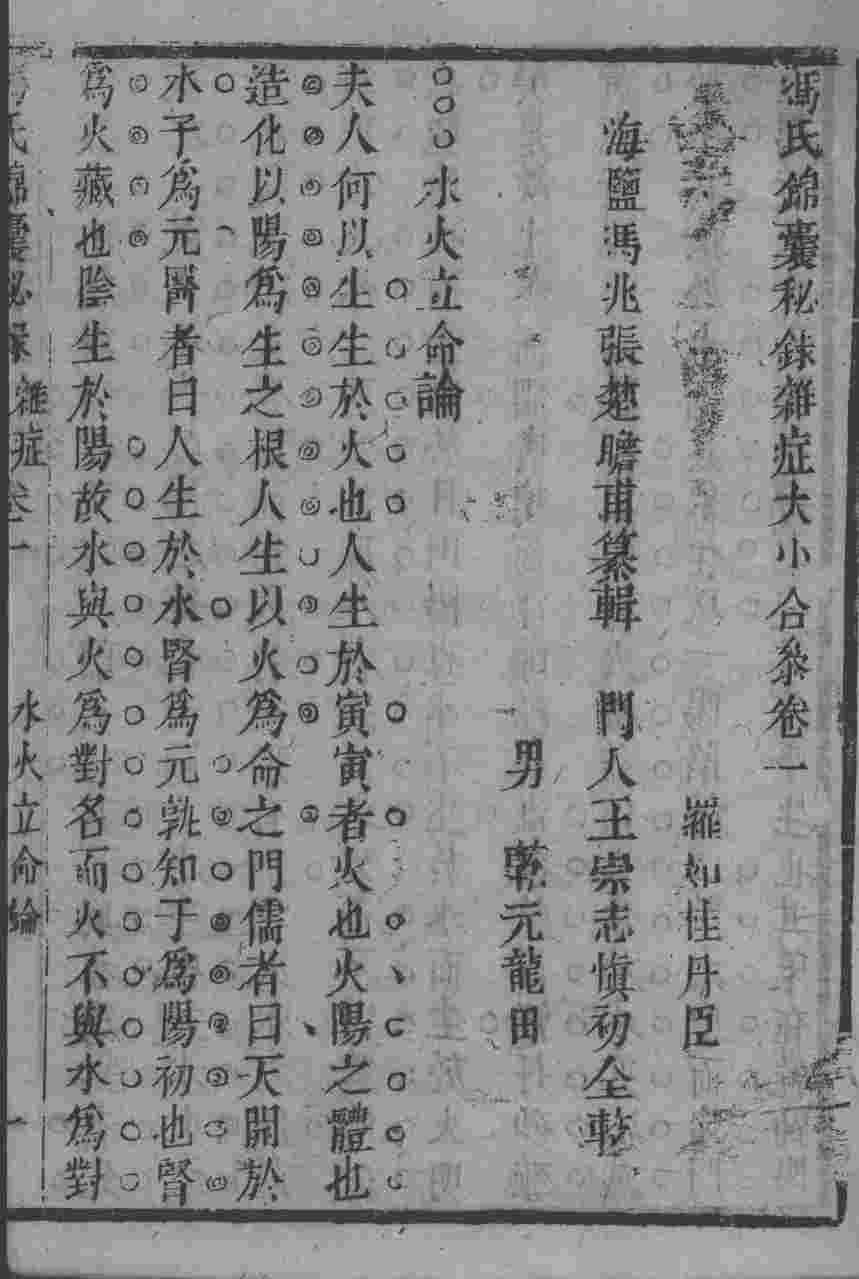 馮氏錦囊秘錄雜症大小合叅卷一
羅如桂丹臣
海鹽馮兆張楚瞻甫纂輯 門人王崇志慎初仝較
男 乾元龍田
水火立命論
夫人何以生生於火也人生於寅寅者火也火陽之體也
造化以陽為生之根人生以火為命之門儒者曰天開於
水子為元醫者曰人生於水腎為元孰知子為陽初也腎
為火藏也陰生於陽故水與火為對名而火不與水為對
馮氏錦囊秘錄 雜症卷一 水火立命論 一